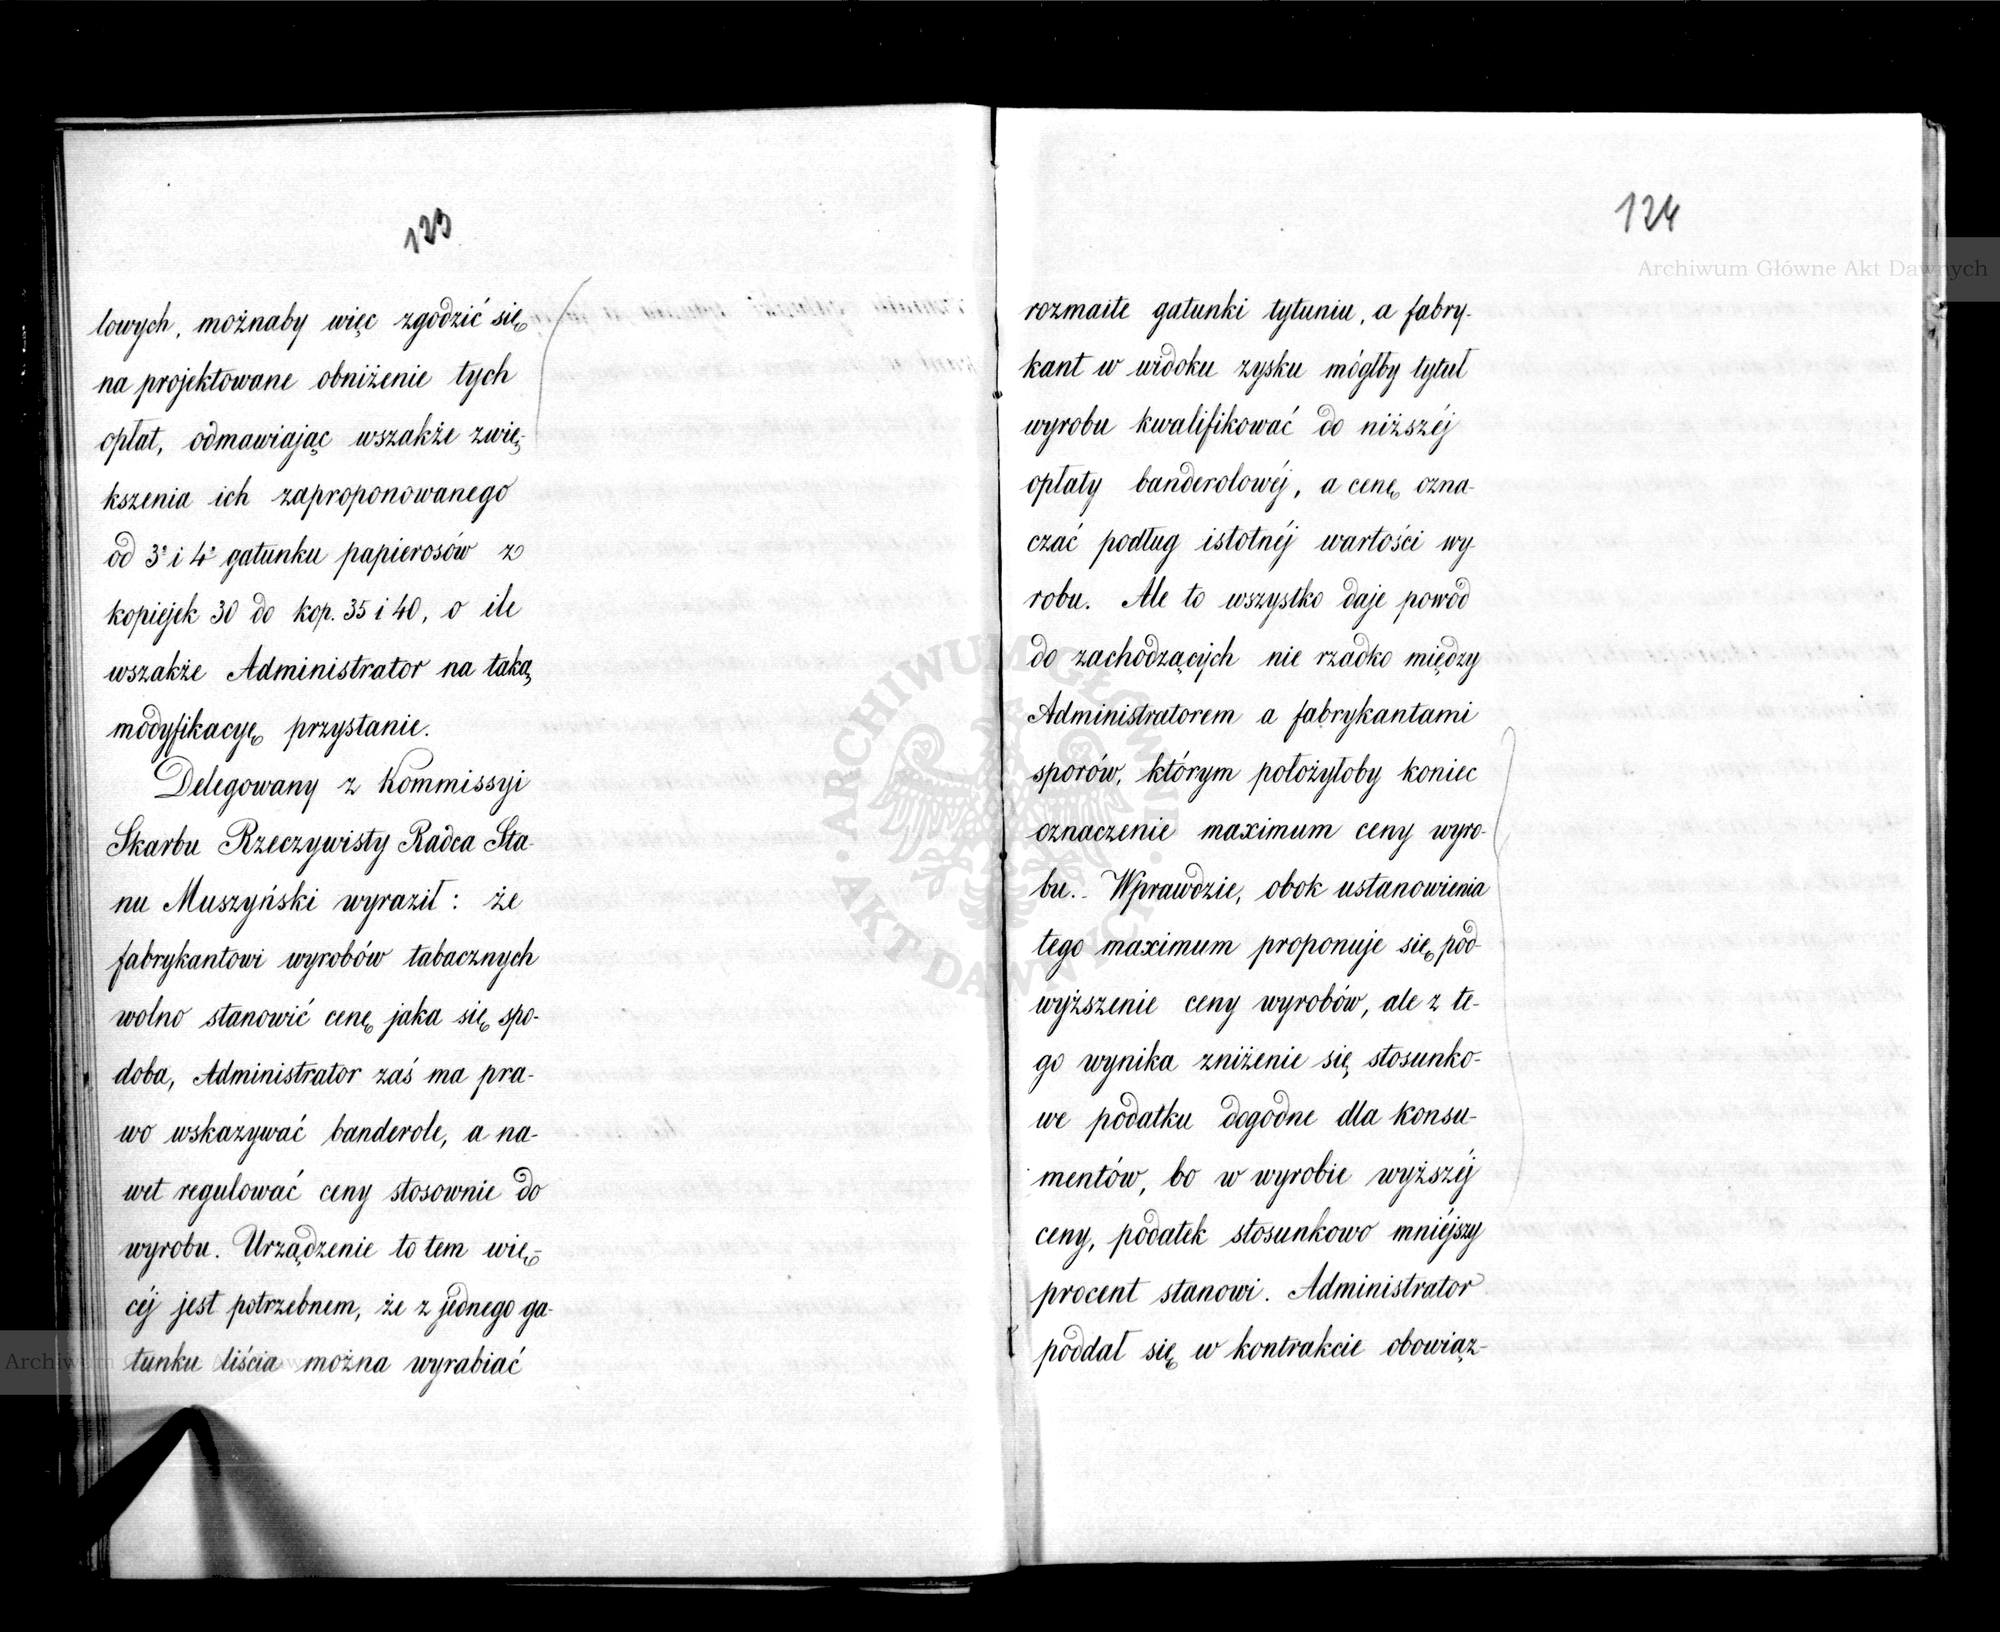 123
lowych, możnaby więc zgodzić się
na projektowane obniżenie tych
opłat, odmawiając wszakże zwię-
kszenia ich zaproponowanego
od 3° i 4° gatunku papierosów z
kopiejek 30 do kop. 35 i 40, o ile
wszakże Administrator na taką
modyfikacyę przystanie.
Delegowany z Kommissyi
Skarbu Rzeczywisty Radca Sta-
nu Muszyński wyraził: że
fabrykantowi wyrobów tabacznych
wolno stanowić cenę jaka się spo-
doba, Administrator zaś ma pra-
wo wskazywać banderole, a na-
wet regulować ceny stosownie do
wyrobu. Urządzenie to tem wię-
céj jest potrzebnem, że z jednego ga-
tunku liścia można wyrabiać
124
Archiwum Główne Akt Dawnych
rozmaite gatunki tytuniu, a fabry-
kant w widoku zysku mógłby tytuł
wyrobu kwalifikować do niższéj
opłaty banderolowéj, a cenę ozna-
czać podług istotnéj wartości wy-
robu. Ale to wszystko daje powód
do zachodzących nie rzadko między
Administratorem a fabrykantami
sporów, którym położyłoby koniec
oznaczenie maximum ceny wyro-
bu.- Wprawdzie, obok ustanowienia
tego maximum proponuje się pod-
wyższenie ceny wyrobów, ale z te-
go wynika zniżenie się stosunko-
we podatku dogodne dla konsu-
mentów, bo w wyrobie wyższéj
ceny, podatek stosunkowo mniéjszy
procent stanowi. Administrator
poddał się w kontrakcie obowiąz-
ARCHIWUM GŁÓWNE AKT DAWNYCH